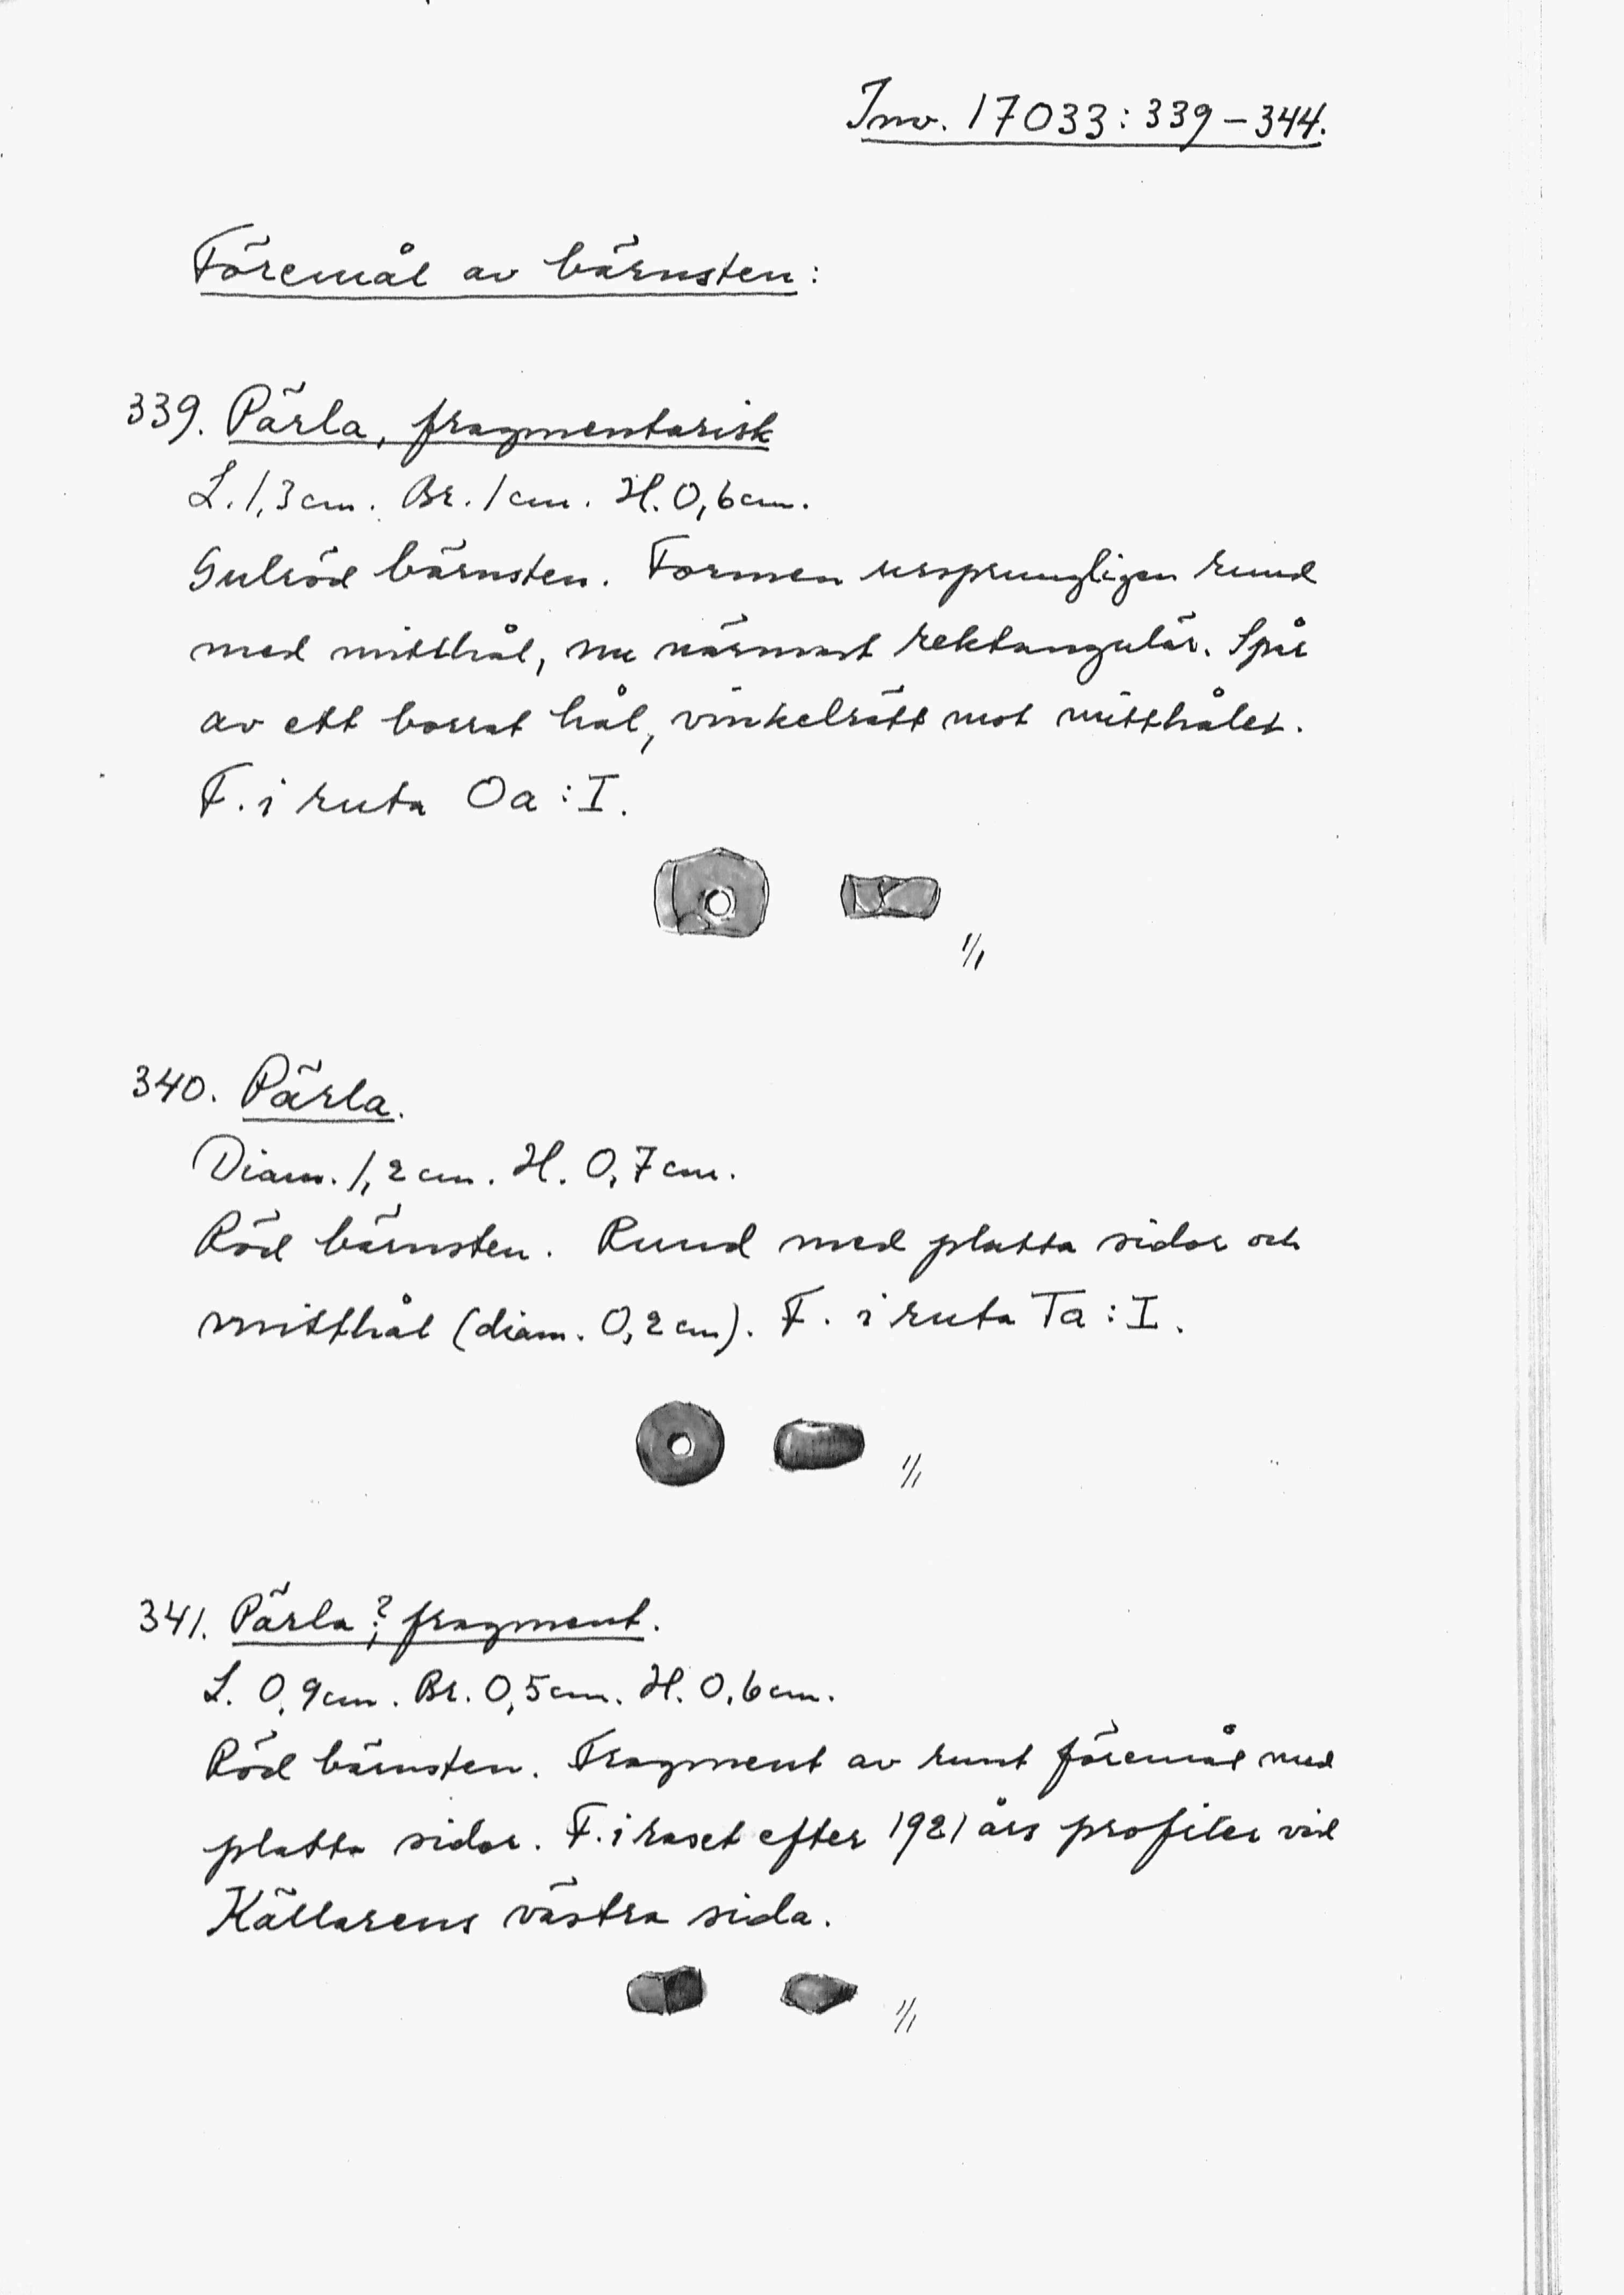 Inv. 17033:339–344.
Föremål av bärnsten:
339. Pärla, fragmentarisk
L. 1,3 cm. Br. 1 cm. H. 0,6 cm.
Gulröd bärnsten. Formen ursprungligen rund
med mitthål, nu närmast rektangulär. Spår
av ett borrat hål, vinkelrätt mot mitthålet.
F. i ruta Oa:I.
1/1
340. Pärla.
Diam. 1,2 cm. H. 0,7 cm.
Röd bärnsten. Rund med platta sidor och
mitthål (diam. 0,2 cm). F. i ruta Ta:I.
1/1
341. Pärla?, fragment.
L. 0,9 cm. Br. 0,5 cm. H. 0,6 cm.
Röd bärnsten. Fragment av runt föremål med
platta sidor. F. i raset efter 1921 års profiler vid
Källarens västra sida.
1/1